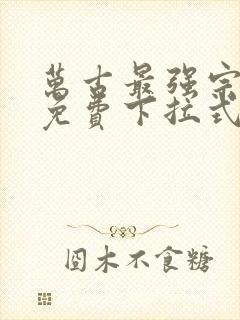 萬古最强宗
免費下拉式
囧木不食糖